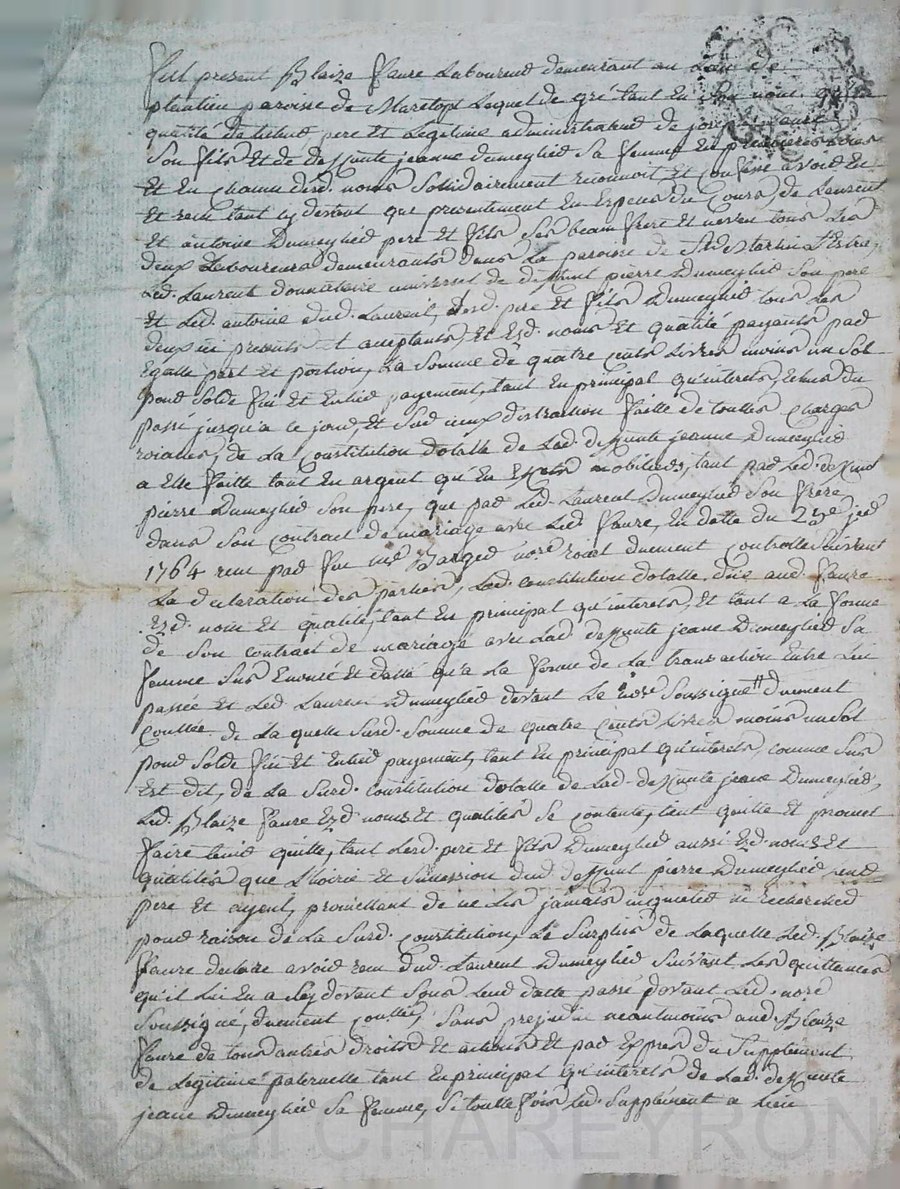 fut present Blaize faure Laboureur demeurant au Lieu de
plantien paroisse de Maretou Lequel de gré tant en son nom qu'en
qualité de tuteur pere et Legitime administrateur de faure
son fils et de deffunte jeanne Dumeylied sa femme en premieres nôces
et en chacun desd. noms solidairement reconnoit et confesse avoir eu
et recu tant cy devant que presentement en especes du cours, de Laurent
et antoine Dumeylied pere et fils ses beau frere et neveu tous Les
deux Laboureurs demeurants dans La paroisse de St. Martin
Led. Laurent donnataire universel de deffunt pierre Dumeylied son pere
et Led. antoine dud. Laurent, Lesd. pere et fils Dumeylied tous Les
deux ici presents et aceptants, et ezd. noms et qualité payants par
Egalle part et portion, La somme de quatre cents Livres moins un sol
pour solde fin et Entier payement, tant en principal qu'interets, echus du
passé jusqu'a ce jour, et sur iceux distraction faitte de touttes charges
roialles, de La constitution dotalle de Lad. deffunte jeanne Dumeylied
a Elle faitte tant en argent qu'en Effets mobiliers, tant par Led. deffunt
pierre Dumeylied son pere, que par Led. Laurent Dumeylied son frere
dans son contract de mariage avec Led. faure, en datte du 23e
1764 recu par feu me Barges nore roial duement controllé suivant
La declaration des parties, Led. constitution dotalle dûe aud. faure
Ezd. nom et qualité, tant en principal qu'interets, et tant a La forme
de son contract de mariage avec Lad. deffunte jeanne Dumeylied sa
femme sus Enoncé et datté qu'a La forme de La transaction Entre Lui
passée et Led. Laurent Dumeylied devant Le nore soussigné duement
conllée de La quelle surd. somme de quatre cents Livres moins un sol
pour solde fin et Entier payement, tant en principal qu'interets, comme sus
est dit, de La surd. constitution dotalle de Lad. deffunte jeanne Dumeylied,
Led. Blaize faure Ezd. noms et qualités se contente, tient quitte et promet
faire tenir quitte, tant Lesd. pere et fils Dumeylied aussi Ezd. noms et
qualités que L'hoirie et succession dud. deffunt pierre Dumeylied Leur
pere et ayeul, promettant de ne Les jamais inquieter ni rechercher
pour raison de La surd. constitution, Le surplus de Laquelle Led. Blaize
faure declare avoir recu dud. Laurent Dumeylied suivant Les quittances
qu'il Lui en a cy devant sous Leur datte passé devant Led. nore
soussigné, duement conllés, sans prejudice neantmoins aud. Blaize
faure de tous autres droits et actions et par Expres du supplement
de Legitime paternelle tant en principal qu'interets de Lad. deffunte
jeane Dumeylied sa femme, si toutte fois Led. supplement a Lieu
CHAREYRON